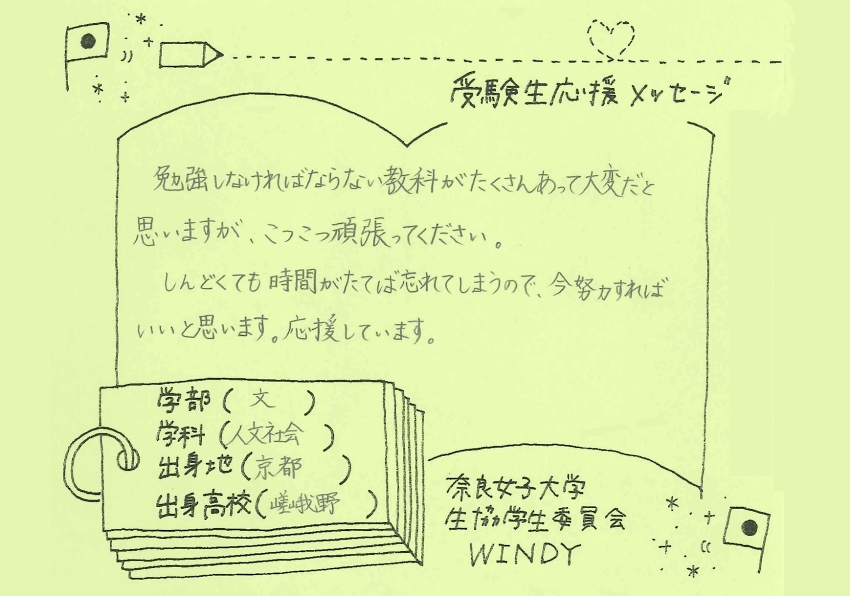 受験生応援 メッセージ
勉強しなければならない教科がたくさんあって大変だと
思いますが、こつこつ頑張ってください。
しんどくても時間がたてば忘れてしまうので、今努力すれば
いいと思います。応援しています。
学部(文)
学科(人文社会)
出身地(京都)
出身高校(嵯峨野)
奈良女子大学
生協学生委員会
WINDY